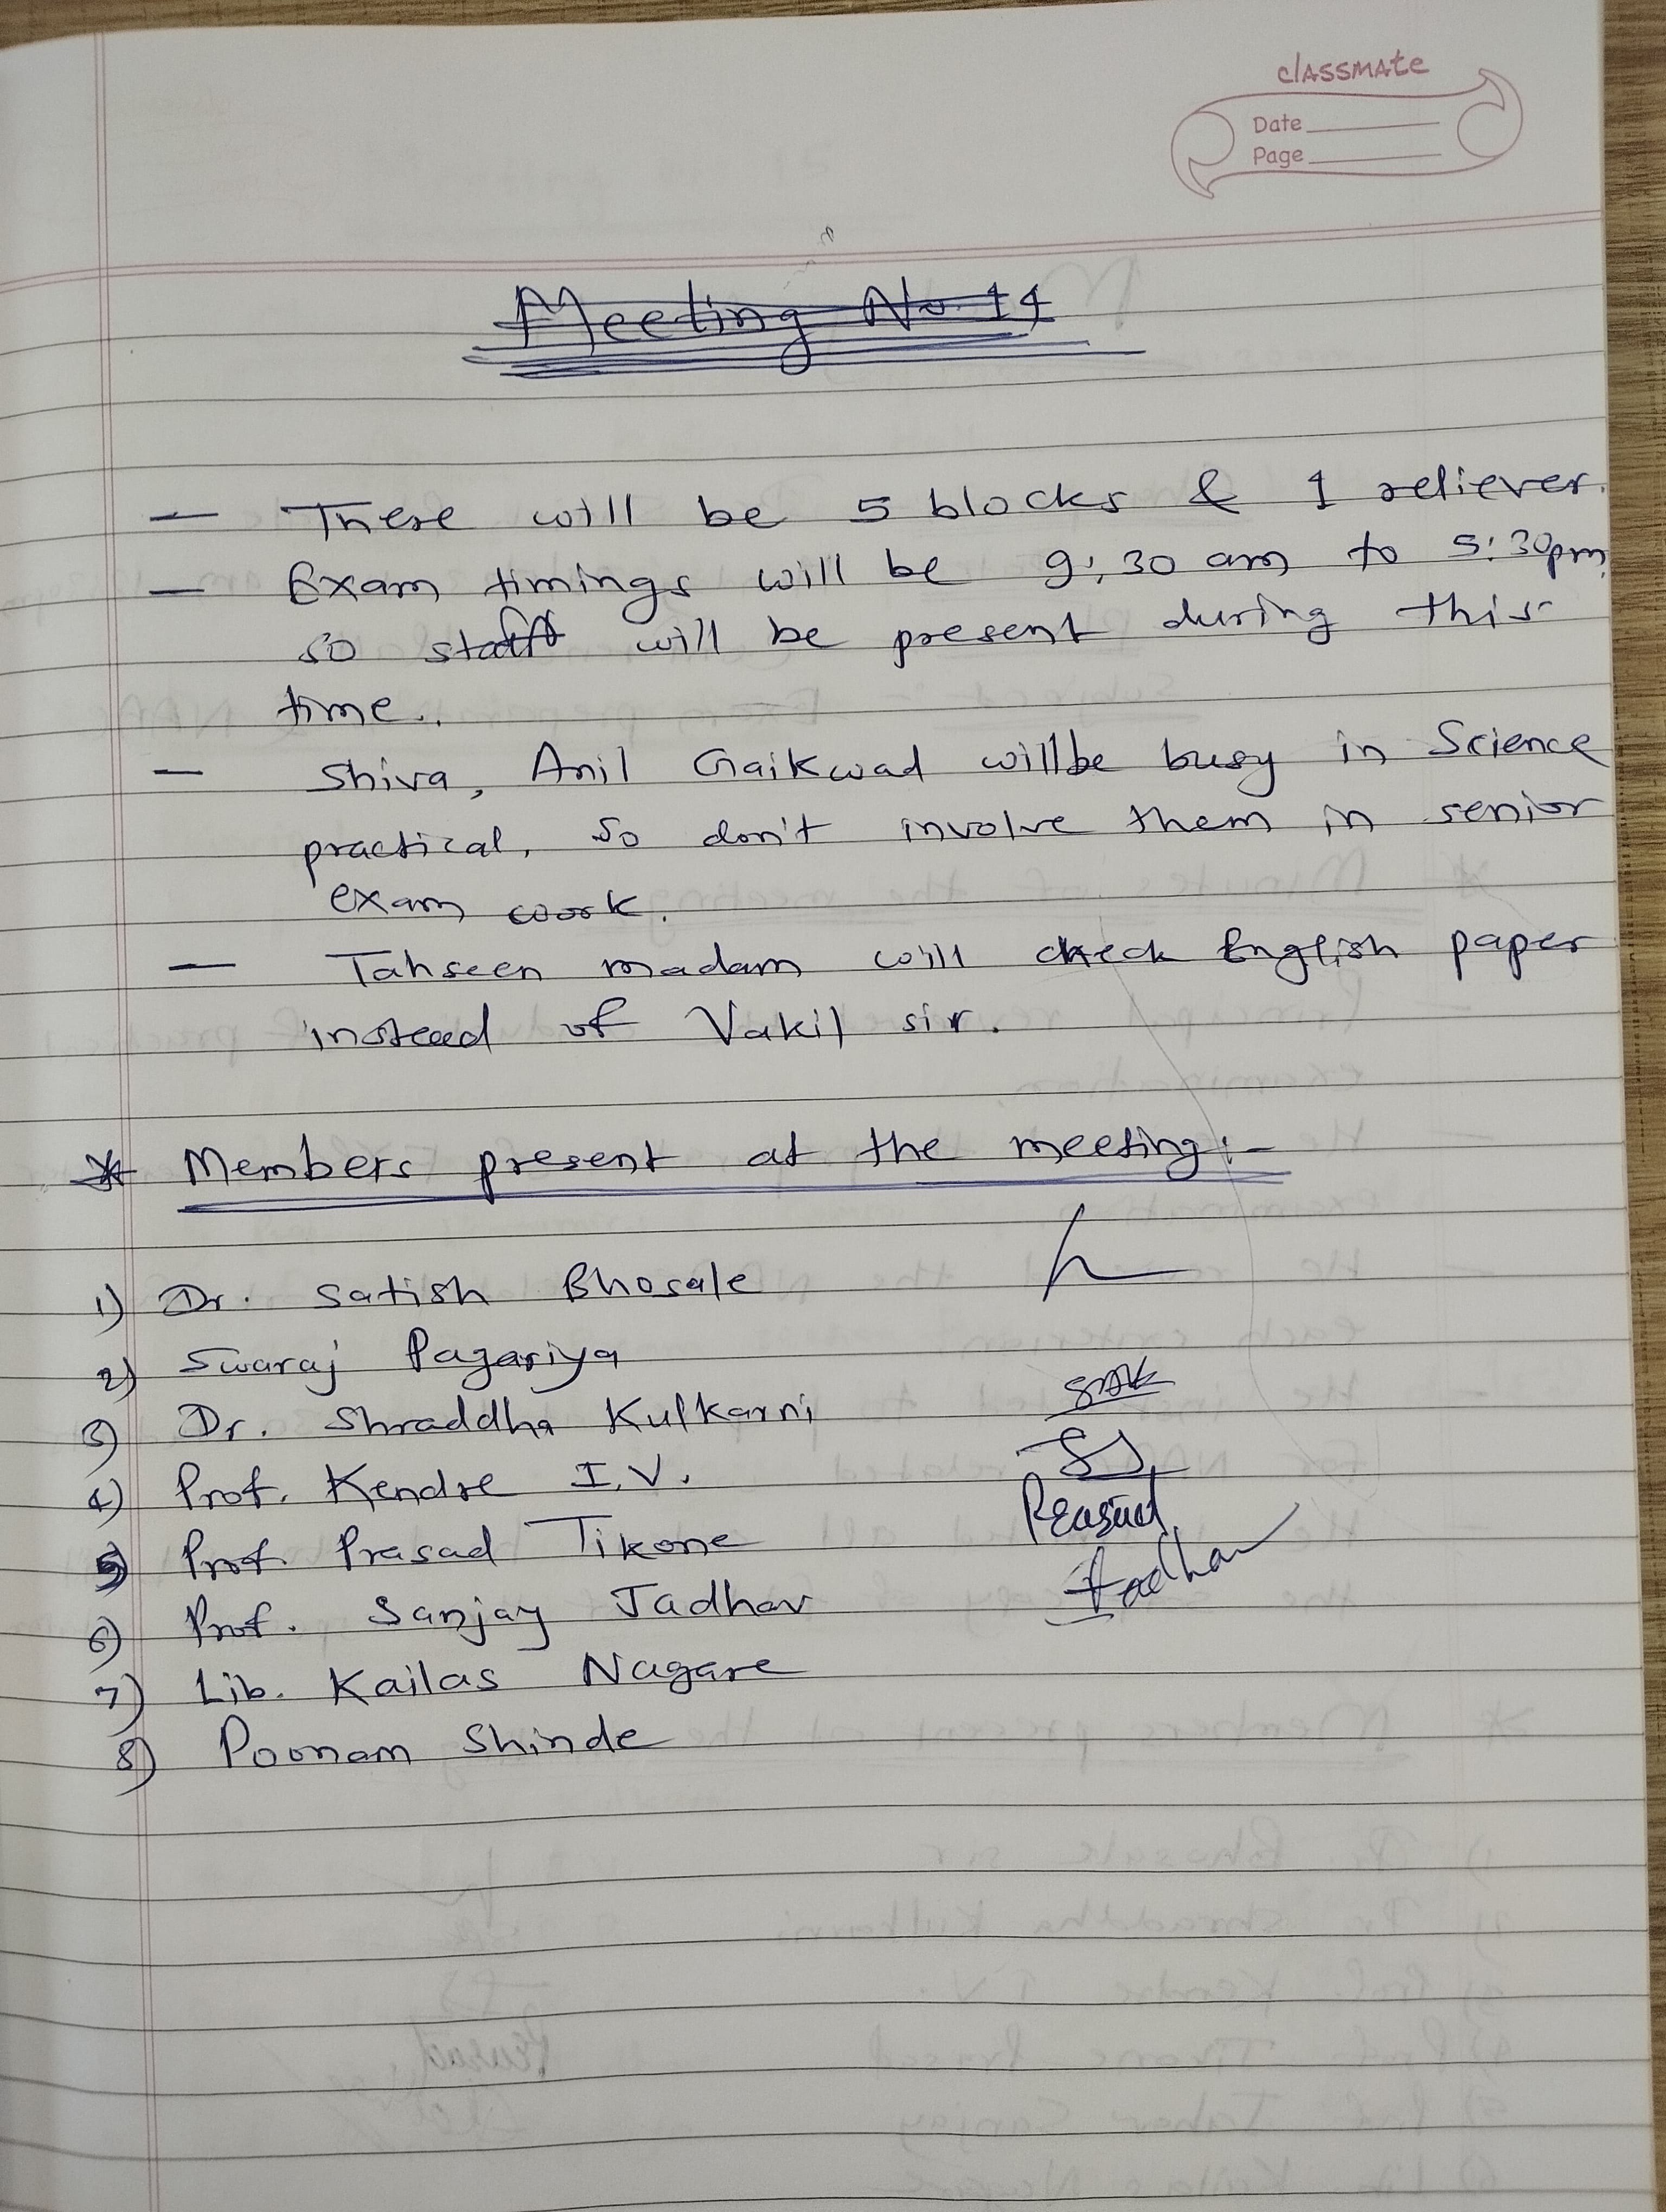 classmate
Date
Page
Meeting No. 14
— There will be 5 blocks & 1 reliever.
— Exam timings will be 9:30 am to 5:30pm
so staff will be present during this
time..
— Shiva, Anil Gaikwad will be busy in Science
practical, so don't involve them in senior
exam work.
— Tahseen madam will check English paper
instead of Vakil sir.
* Members present at the meeting:-
1) Dr. Satish Bhosale
2) Swaraj Pagariya
3) Dr. Shraddha Kulkarni
4) Prof. Kendre I.V.
5) Prof. Prasad Tikone Prasad
6) Prof. Sanjay Jadhav Jadhav
7) Lib. Kailas Nagare
8) Poonam Shinde